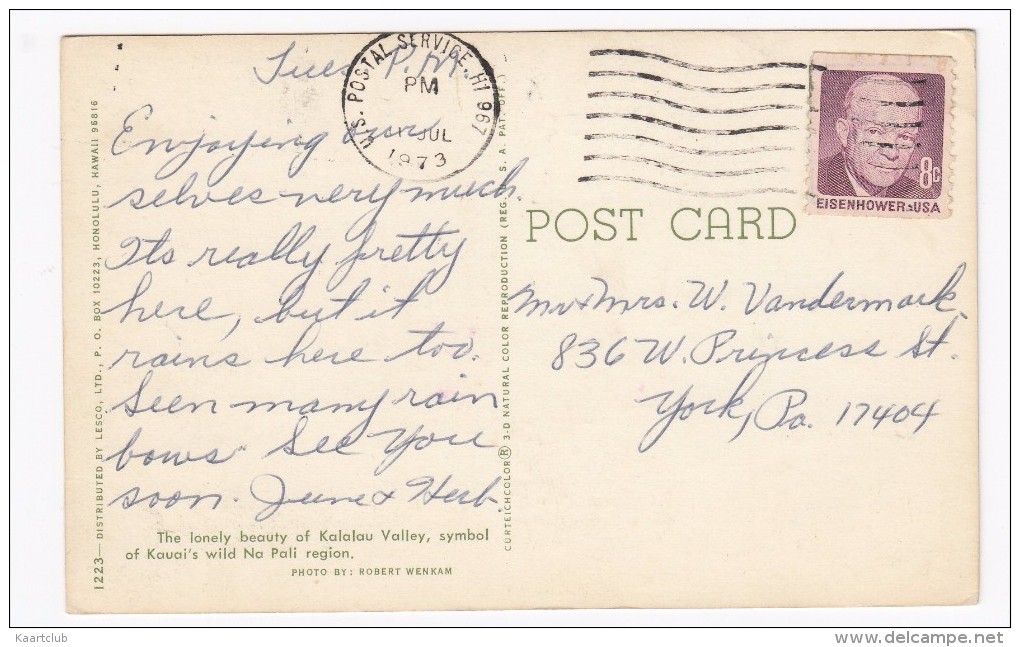 Tues P.M.
U.S. POSTAL SERVICE, HI 967
PM
11 JUL
1973
8c
EISENHOWER·USA
Enjoying our
selves very much.
Its really pretty
here, but it
rains here too.
Seen many rain
bows. See you
soon. June & Herb.
POST CARD
Mr & Mrs. W. Vandermark
836 W. Princess St.
York, Pa. 17404
The lonely beauty of Kalalau Valley, symbol
of Kauai's wild Na Pali region.
PHOTO BY: ROBERT WENKAM
1223—DISTRIBUTED BY LESCO, LTD., P. O. BOX 10223, HONOLULU, HAWAII 96816
CURTEICHCOLOR® 3-D NATURAL COLOR REPRODUCTION (REG. U. S. A. PAT. OFF.)
Kaartclub
www.delcampe.net